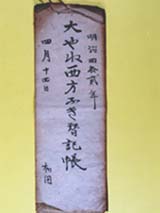 明治四拾弐年
大や㕝西方ふき替記帳
四月十四日